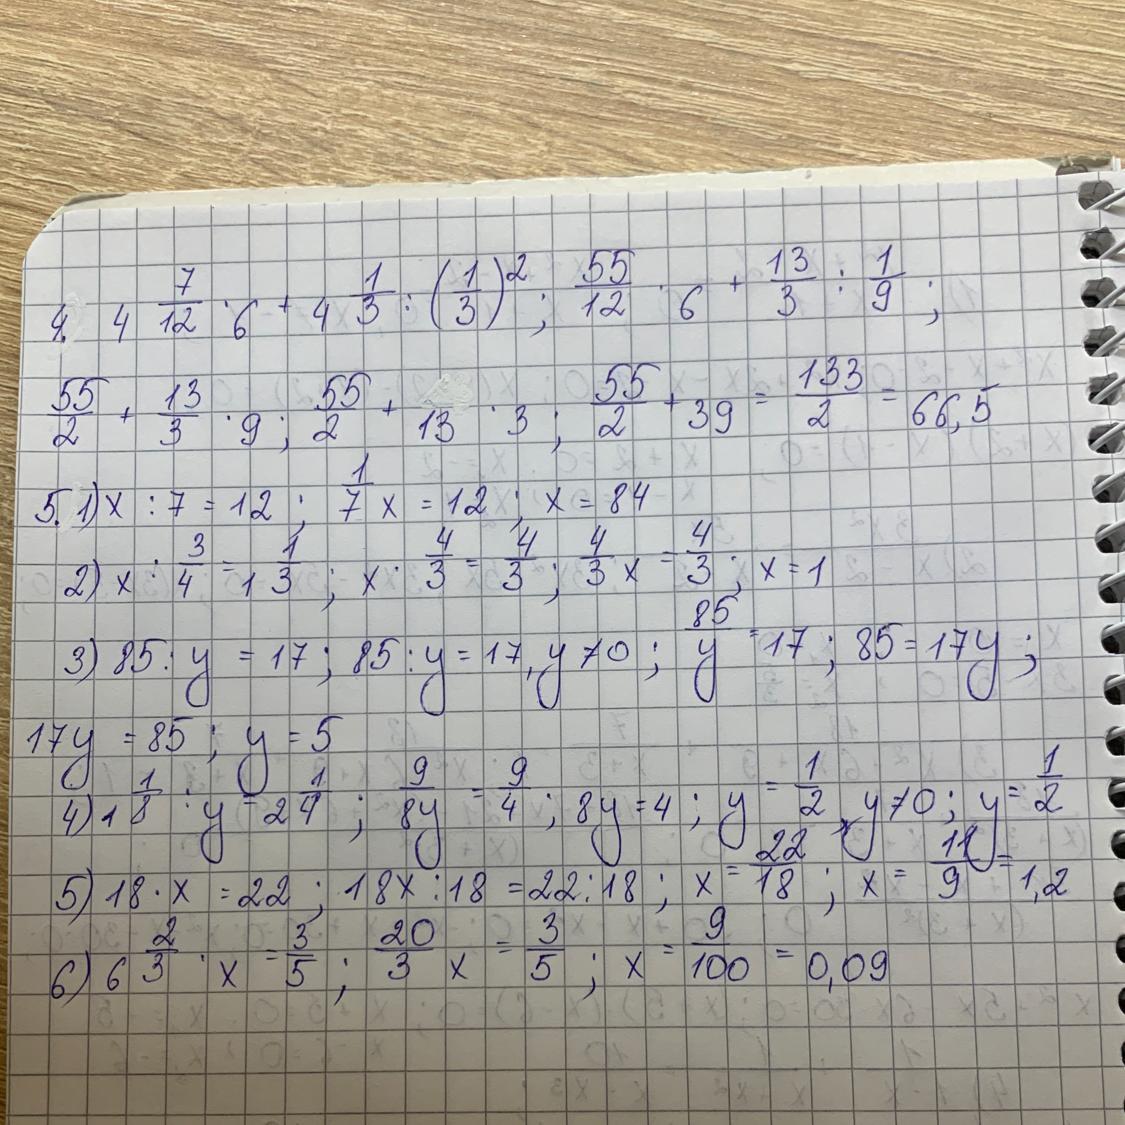 4. 4 7/12 · 6 + 4 1/3 : (1/3)²; 55/12 · 6 + 13/3 : 1/9;
55/2 + 13/3 · 9; 55/2 + 13 · 3; 55/2 + 39 = 133/2 = 66,5
5. 1) x : 7 = 12; 1/7 x = 12; x = 84
2) x : 3/4 = 1 1/3; x · 4/3 = 4/3; 4/3 x = 4/3; x = 1
3) 85 : y = 17; 85 : y = 17, y ≠ 0; 85/y = 17; 85 = 17y;
17y = 85; y = 5
4) 1 1/8 : y = 2 1/4; 9/8y = 9/4; 8y = 4; y = 1/2, y ≠ 0; y = 1/2
5) 18 · x = 22; 18x : 18 = 22 : 18; x = 22/18; x = 11/9 = 1,2
6) 6 2/3 · x = 3/5; 20/3 x = 3/5; x = 9/100 = 0,09